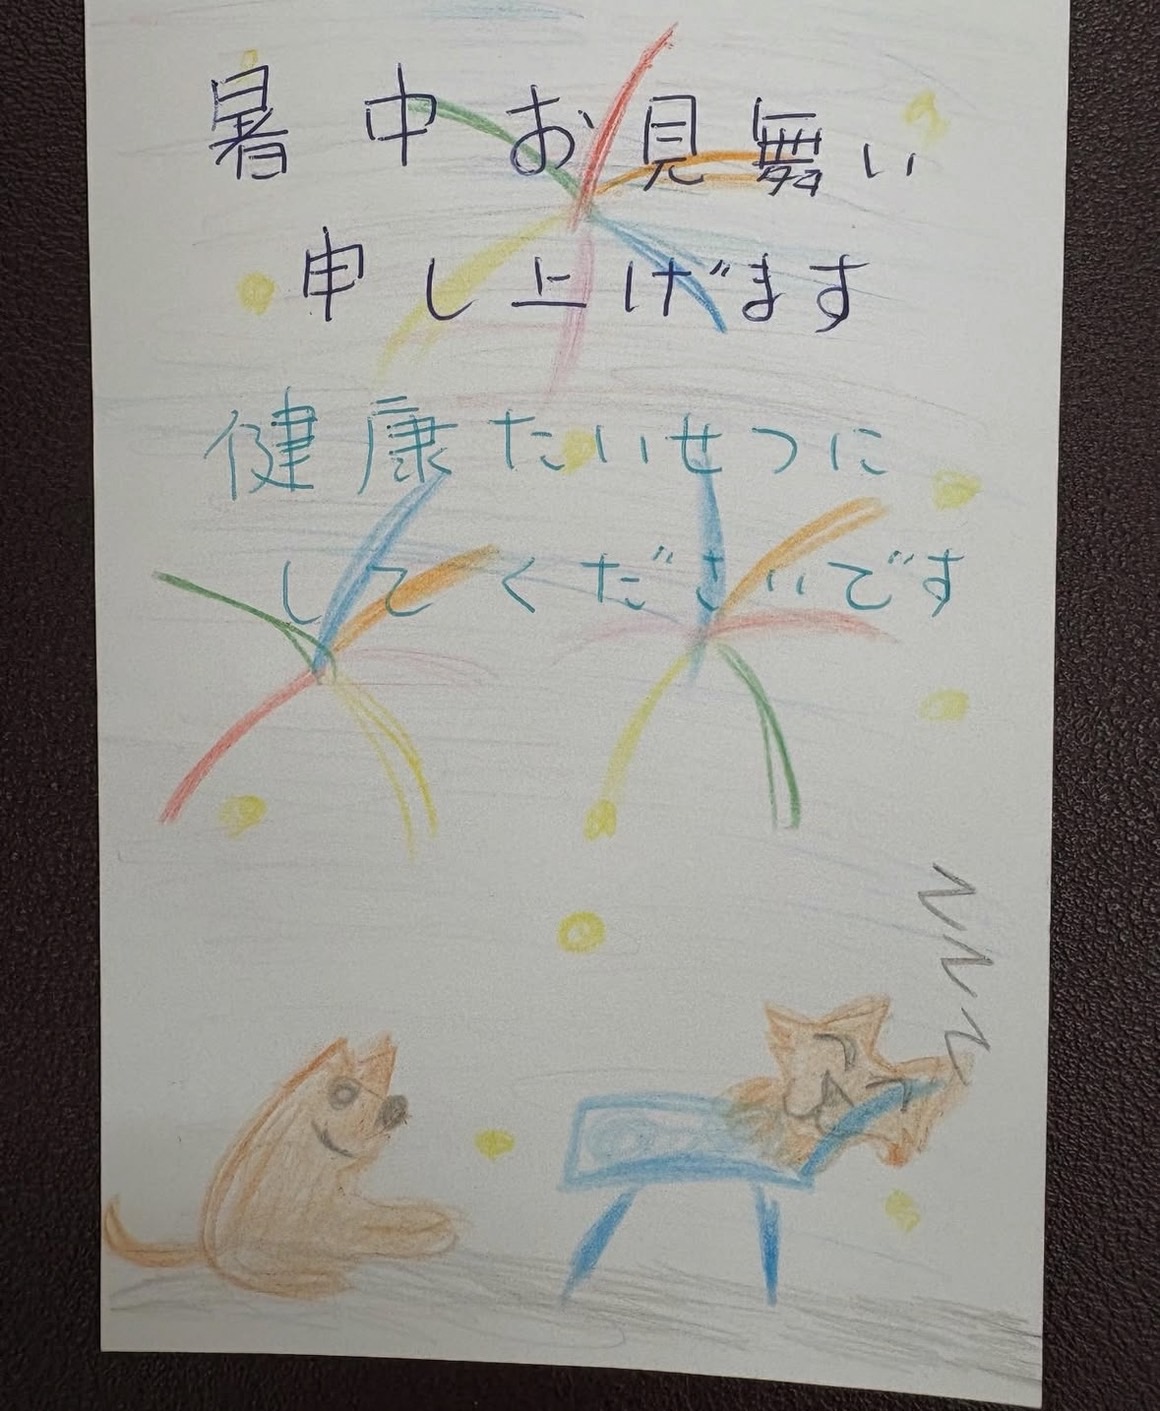 暑中お見舞い
申し上げます
健康たいせつに
してくださいです